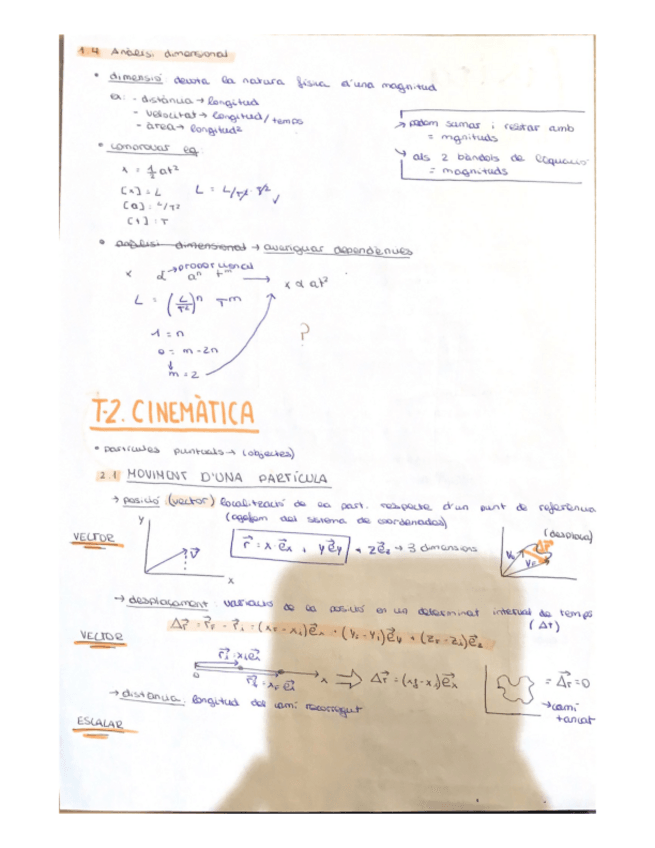 1.4 Anàlisi dimensional
• dimensió denota la natura física d'una magnitud
ex: - distància → longitud
- velocitat → longitud/temps
- àrea → longitud²
→ podem sumar i restar amb
= mgnituds
↳ als 2 bàndols de l'equació
= magnituds
• comprovar eq:
x = 1/2 at²
[x] = L
L = L/T² · T² ✓
[a]: L/T²
[t]: T
• anàlisi dimensional → averiguar dependències
→ proporcional
x α aⁿ tᵐ → x α at²
L = (L/T²)ⁿ Tᵐ
1 = n
?
0 = m - 2n
↓
m = 2
T-2. CINEMÀTICA
• partícules puntuals → (objectes)
2.1 MOVIMENT D'UNA PARTÍCULA
→ posició (vector) localització de la part. respecte d'un punt de referència
(agafem del sistema de coordenades)
VECTOR
y
x
r⃗ = x e⃗ₓ + y e⃗ᵧ + z e⃗_z → 3 dimensions
(desplaça)
→ desplaçament: variació de la posició en un determinat interval de temps
(Δt)
VECTOR
Δr⃗ = r⃗_F - r⃗ᵢ = (x_F - xᵢ) e⃗ₓ + (y_F - yᵢ) e⃗ᵧ + (z_F - zᵢ) e⃗_z
0
x
⇒ Δr⃗ = (x_f - xᵢ) e⃗ₓ
= Δr⃗ = 0
→ camí
tancat
→ distància: longitud del camí recorregut
ESCALAR